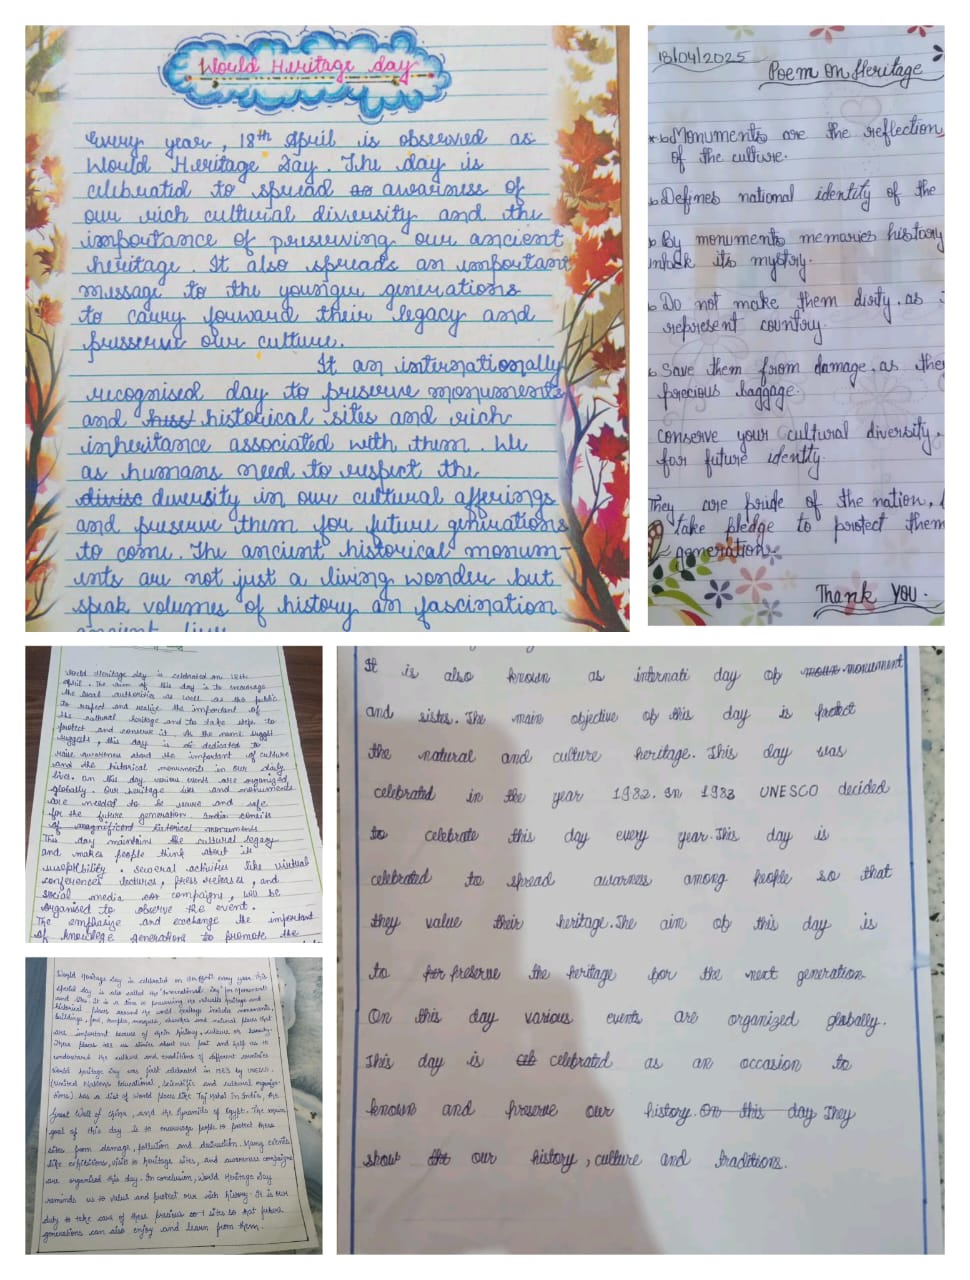 World Heritage day
Every year, 18th April is observed as
World Heritage Day. The day is
celebrated to spread as awarness of
our rich cultural diversity and the
importance of preserving our ancient
heritage. It also spreads an important
message to the younger generations
to carry forward their legacy and
presserve our culture.
It an internationally
recognised day to preserve monuments
and hiss historical sites and rich
inheritance associated with them. We
as humans need to respect the
divisc diversity in our cultural afferings
and preserve them for future generations
to come. The ancient historical monum-
ents are not just a living wonder but
speak volumes of history an fascination
ancient lives
18/04/2025
Poem on Heritage
Monuments are the reflection
of the culture.
Defines national identity of the
By monuments memories history
its mystry.
Do not make them dirty, as
represent country.
Save them from damage, as the
precious baggage.
conserve your cultural diversity,
for future identity.
They are pride of the nation,
take pledge to protect them
generation.
Thank you.
World Heritage day is celebrated on 18th
April. The aim of this day is to encourage
the local authorities as well as the public
to respect and realize the important of
the cultural heritage and to take step to
protect and conserve it. As the name suggt
suggests, this day is dedicated to
raise awareness about the important of culture
and the historical monuments in our daily
lives. On this day various events are organized
globally. Our heritage and monuments
are needed to be save and safe
for the future generation India consits
of magnificent historical monuments
This day maintains the cultural legacy
and makes people think about it
suseptibility. several activities like virtual
conferences lectures, press releases, and
social media campaigns, will be
organised to observe the event.
The emphasize and exchange the important
of knowledge generations to promote the
World Heritage day is celebrated on every year. This
special day is also called the International day for Monuments
and sites. It is a time to the valuable heritage and
historical places around the world. heritage include monuments,
buildings, fort, temples, mosques, churches and natural places that
are important because of their history, culture or beauty.
These places tell us stories about our past and help us to
understand the culture and traditions of different countries
World heritage day was first celebrated in 1983 by UNESCO.
(United Nations Educational, Scientific and cultural organiza-
tions) has a list of world places like Taj Mahal in India, the
Great Wall of China, and the Pyramids of Egypt. The main
goal of this day is to encourage people to protect these
sites from damage, pollution and destruction. Many events
like exhibitions, visits to heritage sites, and awareness campaigns
are organised this day. In conclusion, World Heritage Day
reminds us to value and protect our rich history. It is our
duty to take care of these precious sites so that future
generations can also enjoy and learn from them.
It is also known as internati day of moun monument
and sistes. The main objective of this day is protect
the natural and culture heritage. This day was
celebrated in the year 1982. In 1983 UNESCO decided
to celebrate this day every year. This day is
celebrated to spread awarness among people so that
they value their heritage. The aim of this day is
to for preserve the heritage for the next generation
On this day various events are organized globally.
This day is celebrated as an occasion to
known and preserve our history. On this day They
show our history, culture and traditions.